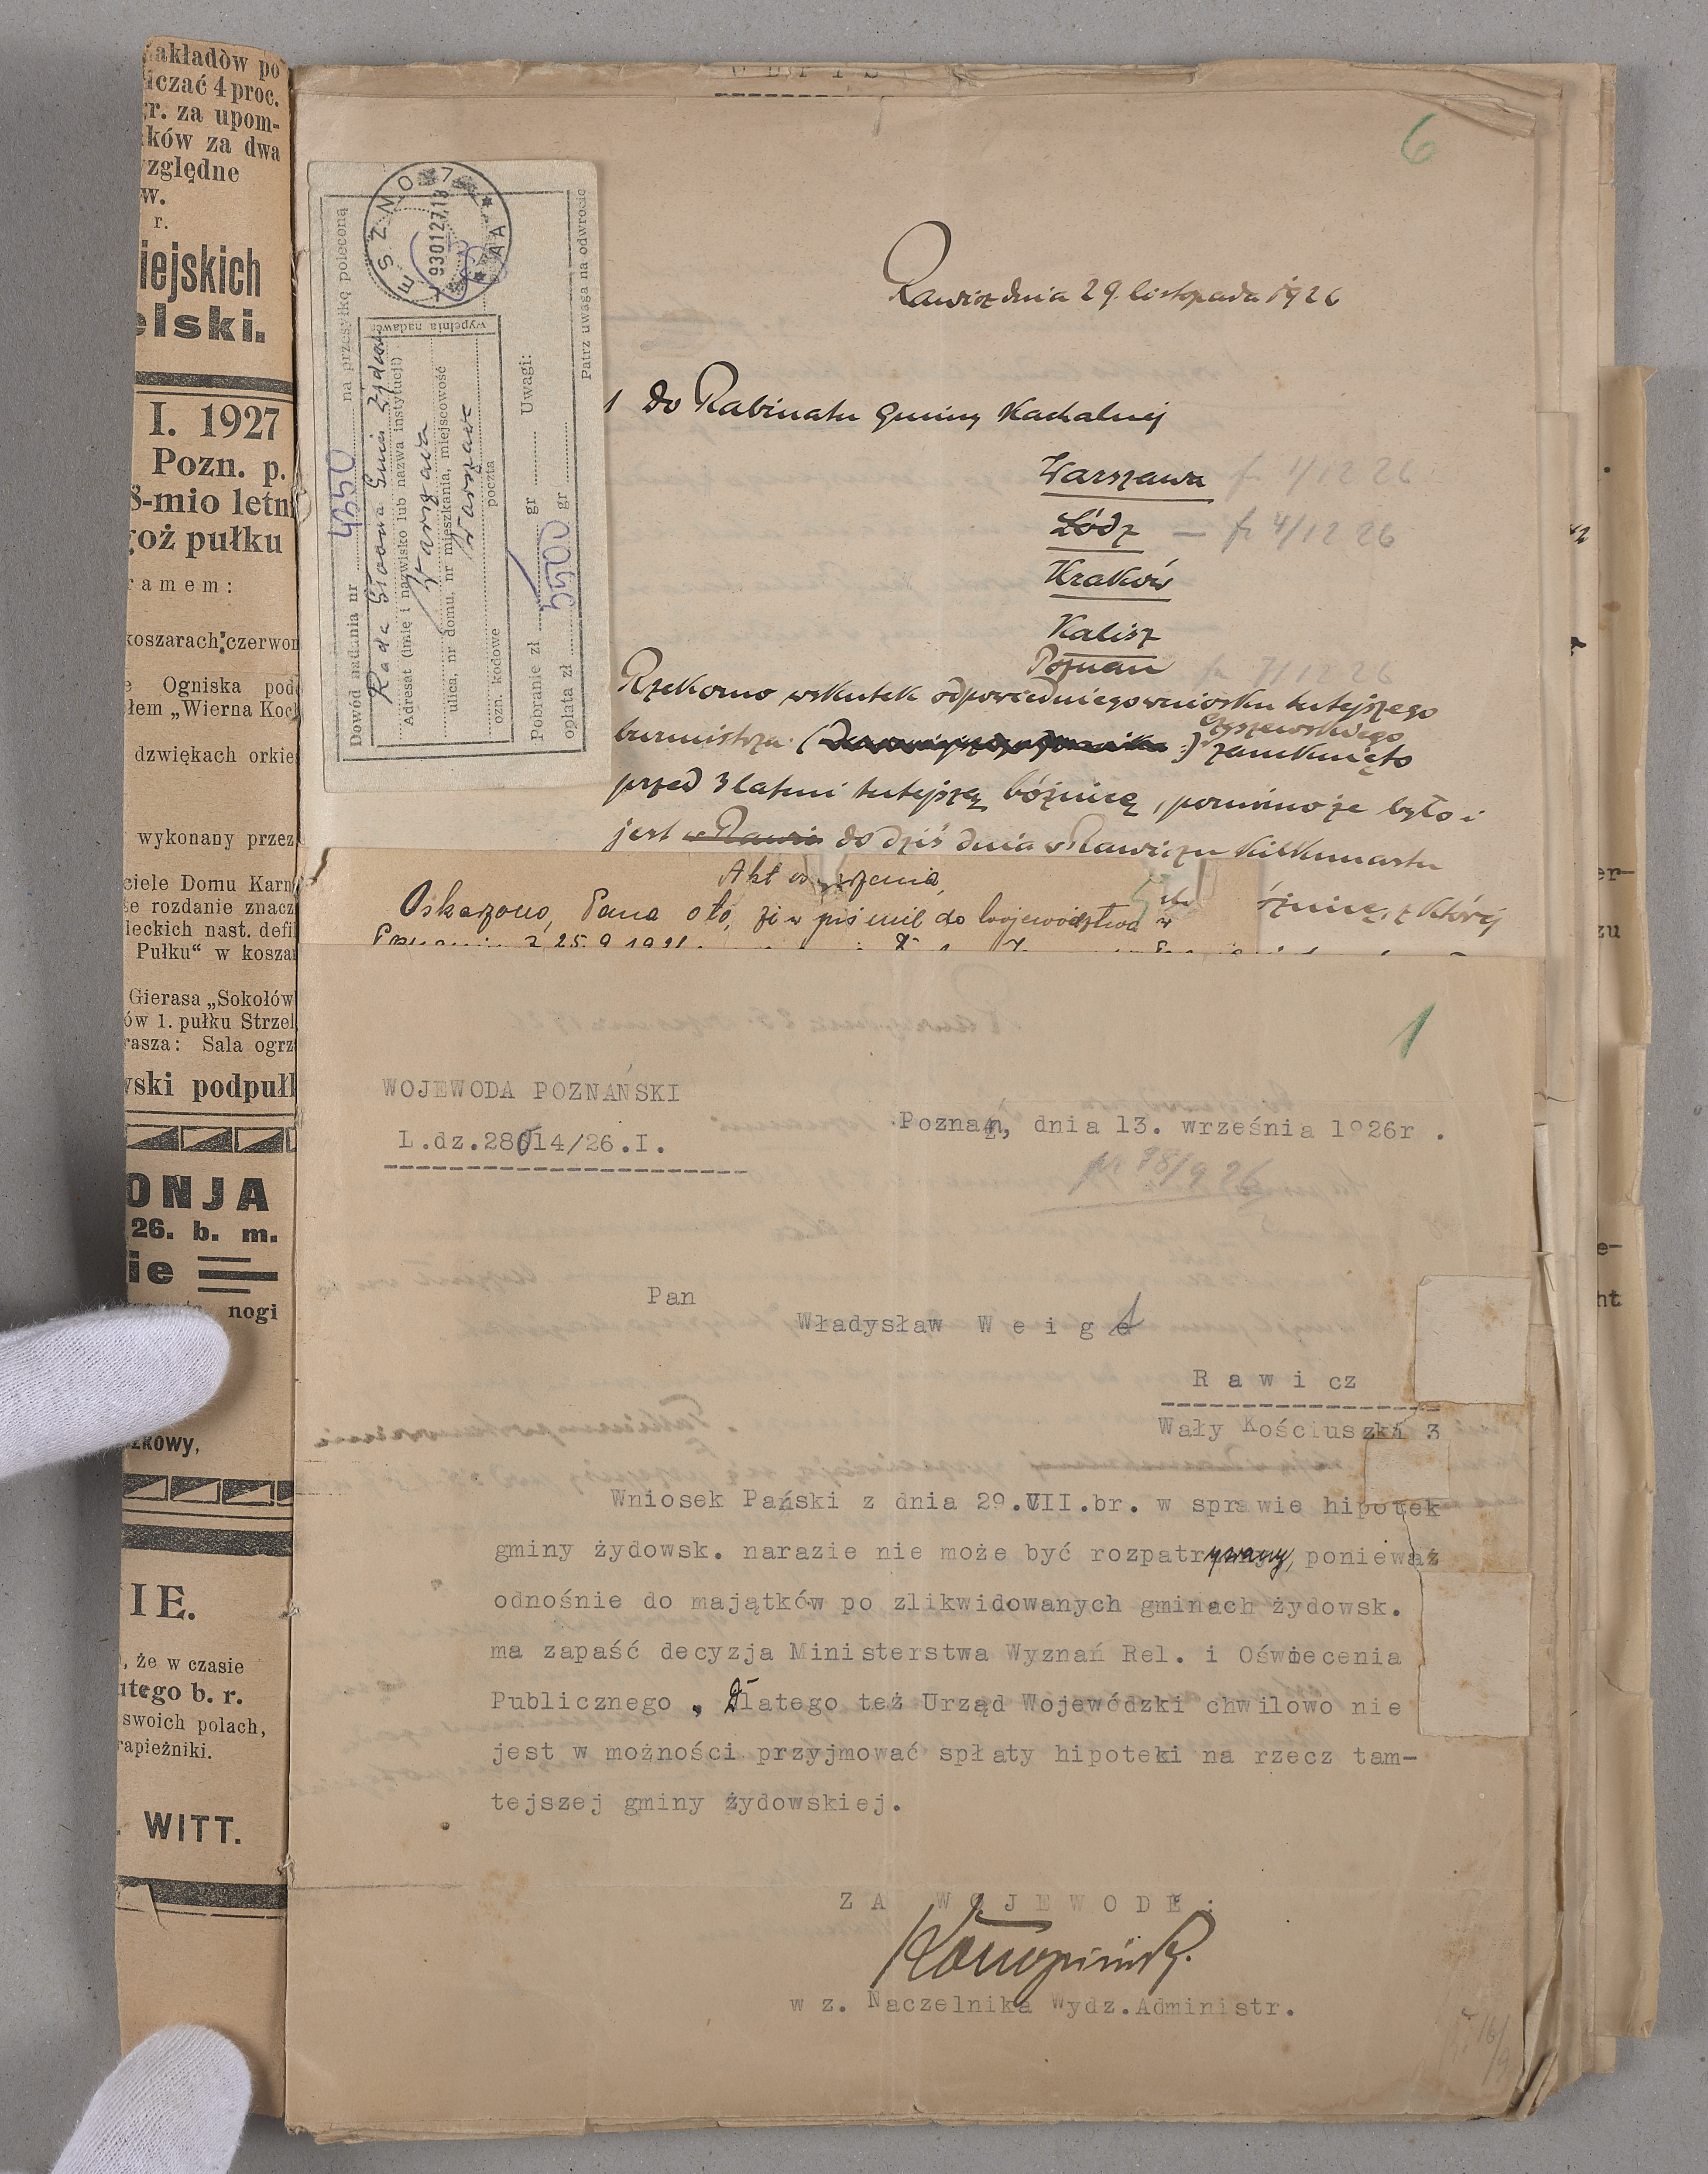 akładów po
iczać 4 proc.
r. za upom-
ków za dwa
względne
w.
r.
iejskich
elski.
I. 1927
Pozn. p.
8-mio letn
oż pułku
ramem:
koszarach czerwon
Ogniska pod
łem „Wierna Koc
dzwiękach orkie
wykonany przez
ciele Domu Karn
e rozdanie znacz
leckich nast. defi
Pułku“ w kosza
Gierasa „Sokołów
ów 1. pułku Strzel
rasza: Sala ogrz
wski podpułk
ONJA
26. b. m.
ie
nogi
zkowy,
IE.
, że w czasie
utego b. r.
swoich polach,
rapieżniki.
. WITT.
ODPIS
6
Dowód nadania nr 4550 na przesyłkę poleconą
Rada Główna Gmin Żydow
Adresat (imię i nazwisko lub nazwa instytucji)
Warszawa
ulica, nr domu, nr mieszkania, miejscowość
Warszawa
ozn. kodowe poczta
wypełnia nadawca
Pobranie zł gr Uwagi:
opłata zł 5500 gr
Patrz uwaga na odwrocie
Rawicz dnia 29. listopada 1926
1 Do Rabinatu Gminy Kachalnej
Warszawa fr 1/12 26
Łódz — fr 4/12 26
Kraków
Kalisz
Poznań fr 7/12 26
Rzekomo wskutek odpowiedniego wniosku tutejszego
burmistrza ( ) Czyszewskiego zamknięto
przed 3 latmi tutejszą bóżnicę, pomimo że było i
jest w Rawi do dziś dnia w Rawiczu kilkunastu
óżnicę, z której
Akt oskarżenia
Oskarżono, Pana oto, że w piśmie do Województwa w
25.9.1921
1
WOJEWODA POZNAŃSKI
L.dz.28014/26.I.
Poznań, dnia 13. września 1926r .
18/9 26
Pan
Władysław W e i g t
R a w i cz
Wały Kościuszki 3
Wniosek Pański z dnia 29.VII.br. w sprawie hipotek
gminy żydowsk. narazie nie może być rozpatrywany, ponieważ
odnośnie do majątków po zlikwidowanych gminach żydowsk.
ma zapaść decyzja Ministerstwa Wyznań Rel. i Oświecenia
Publicznego , Dlatego też Urząd Wojewódzki chwilowo nie
jest w możności przyjmować spłaty hipoteki na rzecz tam-
tejszej gminy żydowskiej.
Z A W O J E W O D Ę :
Konopiński.
w z. Naczelnika Wydz.Administr.
16/9